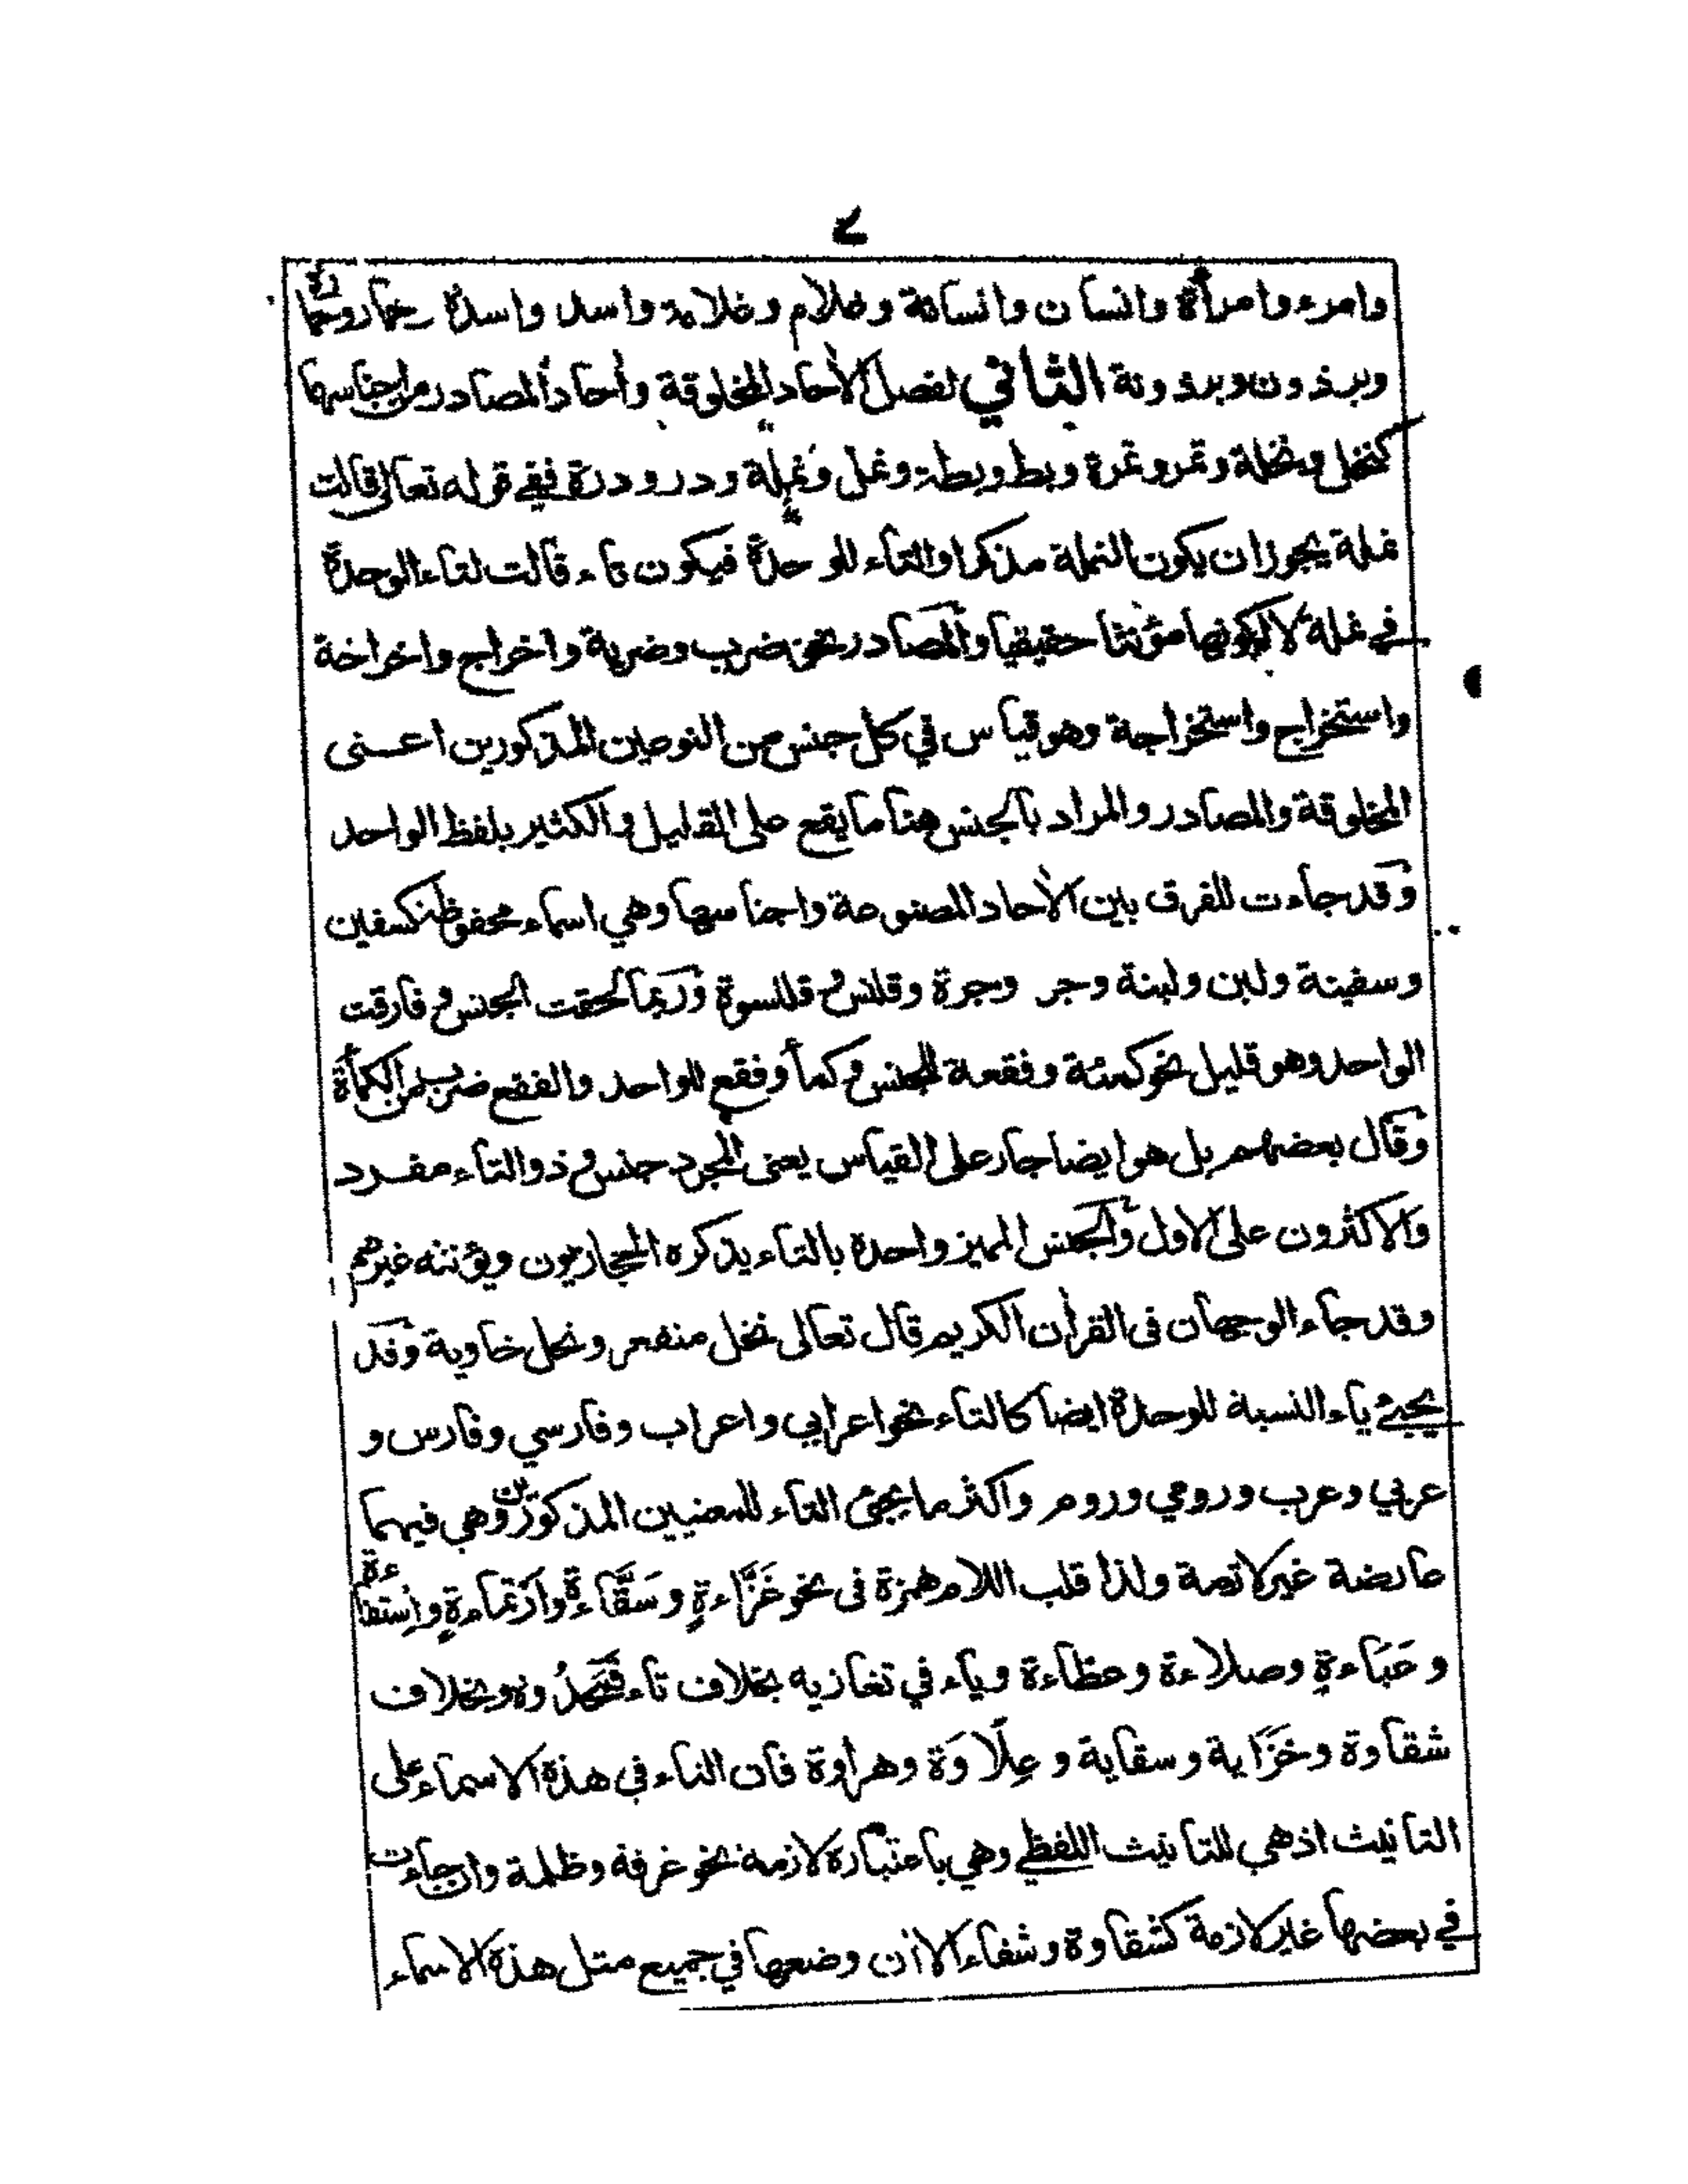 ٤
وامرء وامرأة وانسان وانسانة وغلام وغلامة واسد واسدة حمار وحمارة
وبرذون وبرذونة الثاني لفصل الأحاد المخلوقة وأحاد المصادر من اجناسها
كنخل ونخلة وتمر وتمرة وبط وبطة ونمل ونملة ودر ودرة ففي قوله تعالى قالت
نملة يجوز ان يكون النملة مذكرا والتاء للوحدة فيكون تاء قالت لتاء الوحدة
في نملة لا لكونها مؤنثا حقيقيا والمصادر نحو ضرب وضربة واخراج واخراجة
واستخراج واستخراجة وهو قياس في كل جنس من النوعين المذكورين اعنى
المخلوقة والمصادر والمراد بالجنس هنا ما يقع على القليل والكثير بلفظ الواحد
وقد جاءت للفرق بين الأحاد المصنوعة واجناسها وهي اسماء محفوظة كسفين
وسفينة ولبن ولبنة وجر وجرة وقلنس وقلنسوة وربما لحقت الجنس وفارقت
الواحد وهو قليل نحو كمئة وفقعة للجنس وكمأ وفقع للواحد والفقع ضرب من الكمأة
وقال بعضهم بل هو ايضا جار على القياس يعنى المجرد جنس وذو التاء مفرد
والاكثرون على الاول والجنس المميز واحدة بالتاء يذكره الحجازيون ويؤنثه غيرهم
وقد جاء الوجهان فى القرأن الكريم قال تعالى نخل منقعر ونخل خاوية وقد
يجئ ياء النسبة للوحدة ايضا كالتاء نحو اعرابي واعراب وفارسي وفارس و
عربي وعرب ورومي وروم واكثر ما يجئ التاء للمعنيين المذكورين وهي فيهما
عارضة غير لازمة ولذا قلب اللام همزة فى نحو غَزَّاءةٍ وسَقَّاءةٍ وارتماءةٍ واِستقاءة
وعَبَاءةٍ وصلاءة وعظاءة وياء في تغازيه بخلاف تاء قَمَحْدُوة وبخلاف
شقاوة وخَزَاية وسقاية وعِلَاوَة وهراوة فان التاء فى هذة الاسماء على
التانيث اذ هي للتانيث اللفظي وهي باعتباره لازمة نحو غرفة وظلمة وان جاءت
في بعضها غير لازمة كشقاوة وشقاء الا ان وضعها في جميع مثل هذة الاسماء